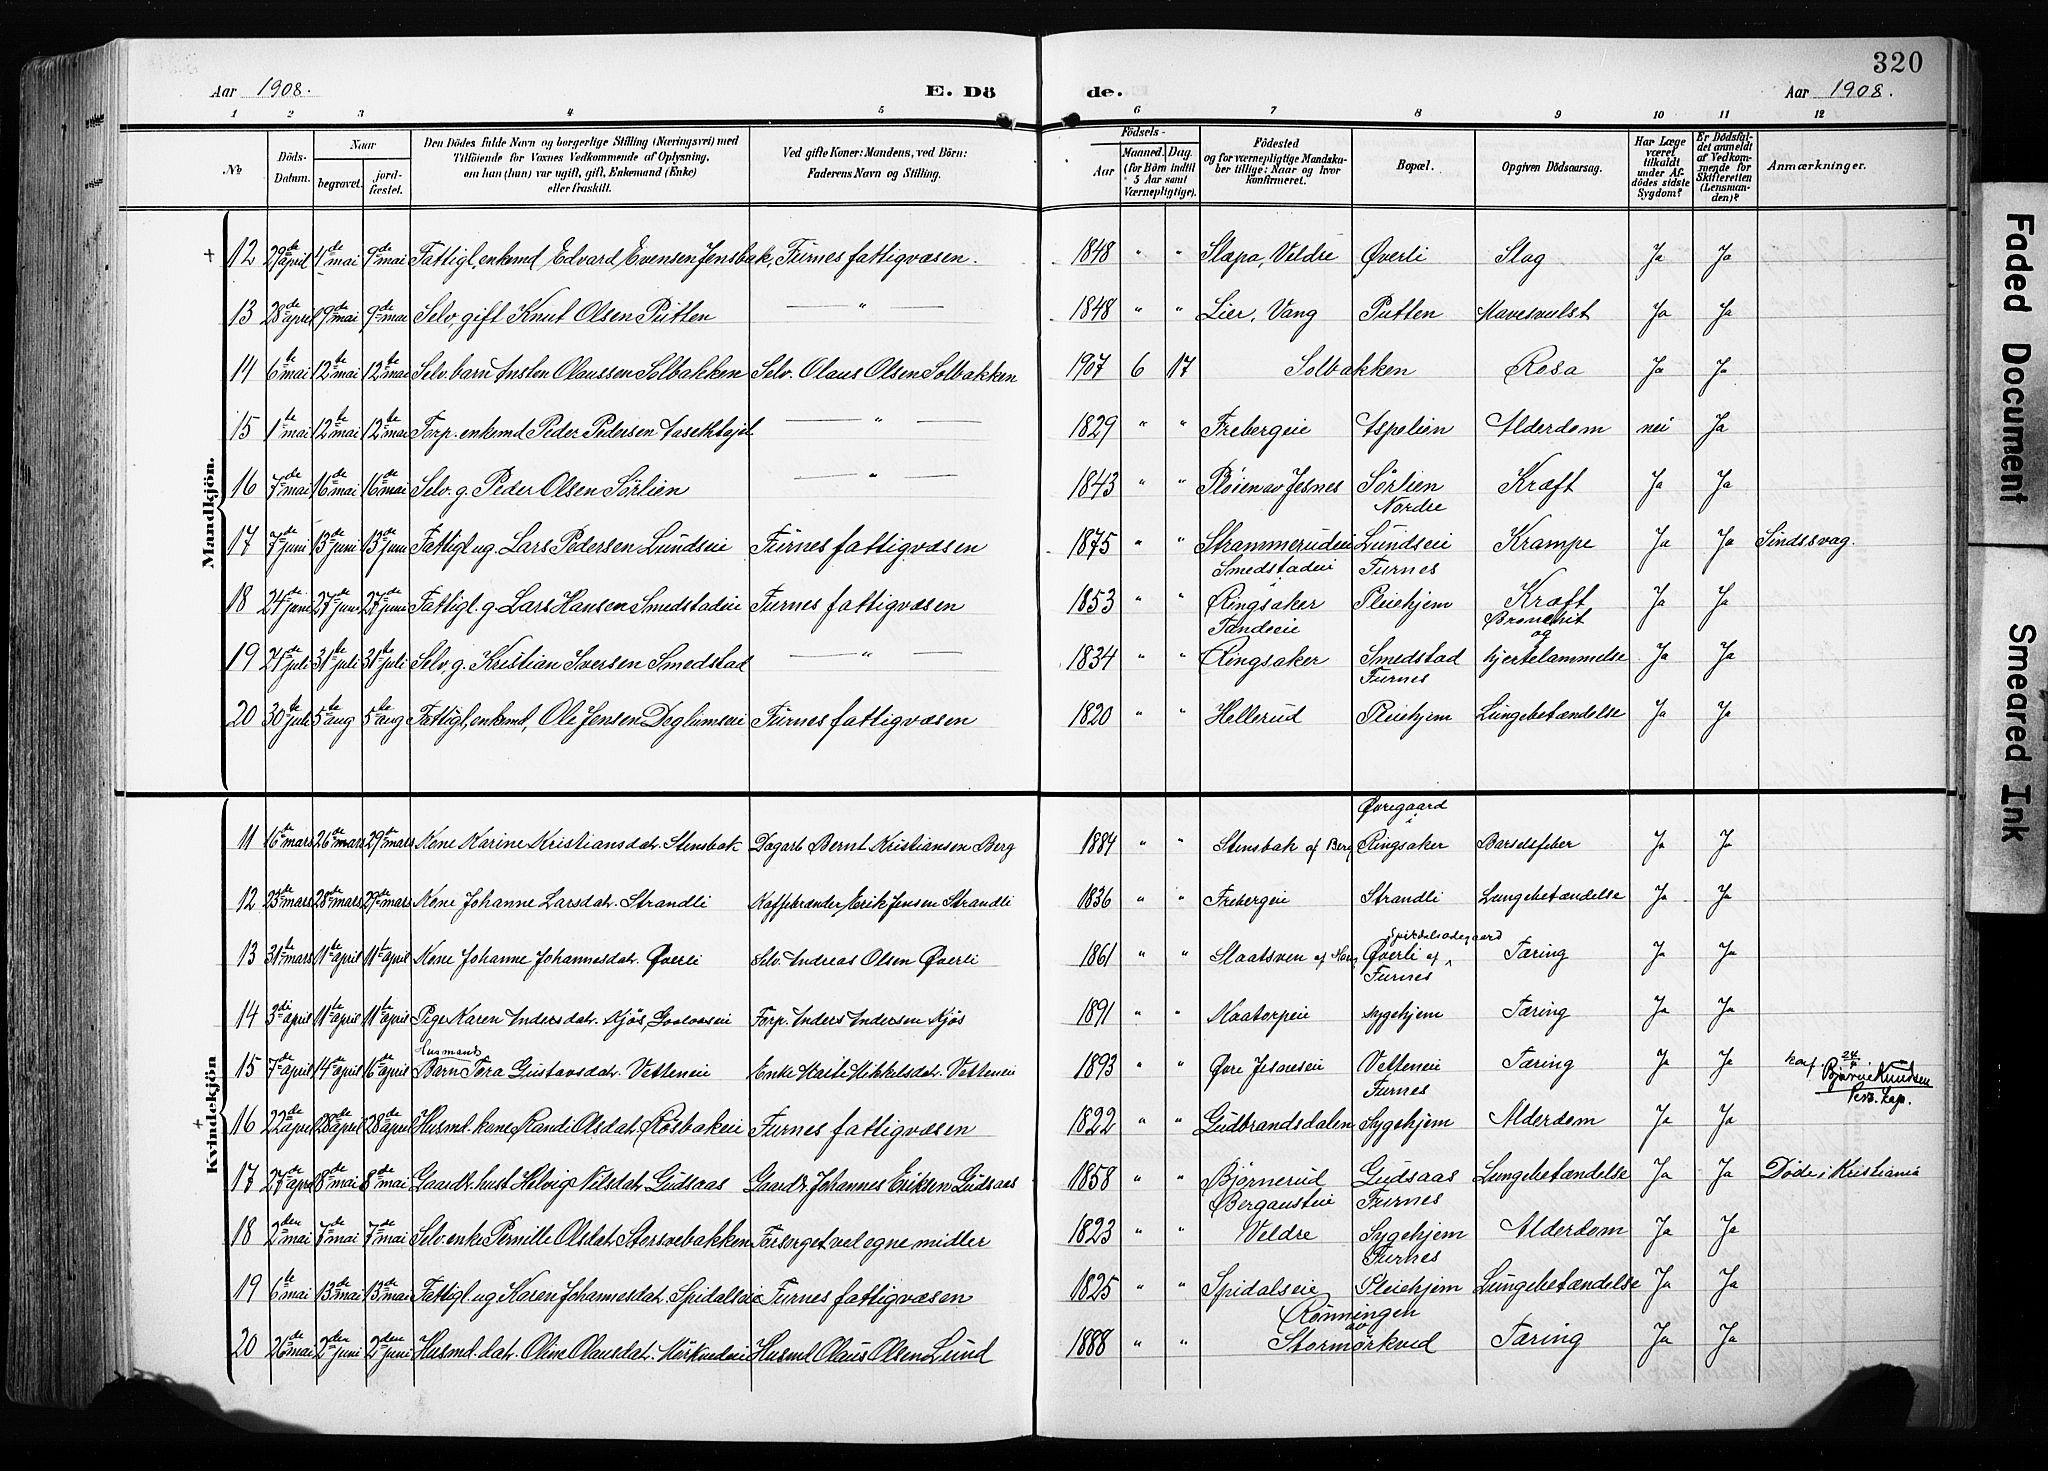 320
Aar 1908.
E. Dö
de.
Aar 1908.
1 2 3 4 5 6 7 8 9 10 11 12
No
Döds-Datum.
Naar
begravet.
jord-fæstet.
Den Dödes fulde Navn og borgerlige Stilling (Næringsvei) med
Tilföiende for Voxnes Vedkommende af Oplysning,
om han (hun) var ugift, gift, Enkemand (Enke)
eller fraskilt.
Ved gifte Koner: Mandens, ved Börn:
Faderens Navn og Stilling.
Födsels-
Aar
Maaned. Dag.
(for Börn indtil
5 Aar samt
Værnepligtige).
Födested
og for værnepligtige Mandska-
ber tillige: Naar og hvor
konfirmeret.
Bopæl.
Opgiven Dödsaarsag.
Har Læge
været
tilkaldt
under Af-
dödes sidste
Sygdom?
Er Dödsfal-
det anmeldt
af Vedkom-
mende for
Skifteretten
(Lensman-
den)?
Anmærkninger.
Mandkjön.
+ 12 29de april 11te mai 9de mai Fattigl., enkemd Edvard Evensen Jensbak, Furnes fattigvæsen. 1848 " " Slæpa, Veldre Øverli Slag Ja Ja
13 28de april 19de mai 9de mai Selv, gift Knut Olsen Pütten — " — 1848 " " Lier, Vang Pütten Mavesvulst Ja Ja
14 6te mai 12te mai 12te mai Selv. barn Insten Olaussen Solbakken Selv. Olaus Olsen Solbakken 1907 6 17 Solbakken Rosa Ja Ja
15 1te mai 12te mai 12te mai Torp. enkemd Peder Pedersen — " — 1829 " " Frebergeie Aspelien Alderdom nei Ja
16 7de mai 16de mai 16de mai Selv. g. Peder Olsen Sørlien — " — 1843 " " Pløien av Jesnes Sørlien Kræft Ja Ja
Nordre
17 7de juni 13de juni 13de juni Fattigl. ug. Lars Pedersen Lundseie Furnes fattigvæsen 1875 " " Strammerudeie Lundseie Krampe Ja Ja Sindssvag.
Smedstadeie Furnes
18 24de juni 27de juni 27de juni Fattigl. g. Lars Hansen Smedstadeie Furnes fattigvæsen 1853 " " Ringsaker Pleiehjem Kræft Ja Ja
Tandeeie Bronchit
og
19 24de juli 31te juli 31te juli Selv. g. Kristian Iversen Smedstad — " — 1834 " " Ringsaker Smedstad hjertelammelse Ja Ja
Furnes
20 30te juli 5te aug 5te aug Fattigl., enkemd, Ole Jensen Deglumseie Furnes fattigvæsen 1820 " " Hellerud Pleiehjem Lungebetændelse Ja Ja
Kvindekjön
Øvregaard
i
11 16de mars 26de mars 29de mars Kone Karine Kristiansdat. Stensbak Dagarb Bernt Kristiansen Berg 1884 " " Stensbak af Berg Ringsaker Barselsfeber Ja Ja
12 23de mars 28de mars 29de mars Kone Johanne Larsdat. Strandli Kaffebrænder Erik Jensen Strandli 1836 " " Frebergeie Strandli Lungebetændelse Ja Ja
Spirdalsødegaard
13 31te mars 11te april 11te april Kone Johanne Johannesdat. Øverli Selv. Andreas Olsen Øverli 1861 " " Staatsven af Øverli af Tæring Ja Ja
Furnes
14 3di april 11te april 11te april Pige Karen Andersdat. Kjøs, Torp. Anders Andersen Kjøs 1891 " " Kvatorpeie Sygehjem Tæring Ja Ja
Husmands
15 7de april 14de april 16de april Barn Tora Gustavsdat. Vetteneie Enke Marte Mikkelsdat. Vetteneie 1893 " " Øvre Jesneseie Vetteneie Tæring Ja Ja konf. 24
Furnes Bjarne Knudsen
Pers. kap.
+ 16 22de april 28de april 28de april Husmd. kone Randi Olsdat. Røsbakeie Furnes fattigvæsen 1822 " " Gudbrandsdalen Sygehjem Alderdom Ja Ja
17 27de april 8de mai 8de mai Gaardbr. hust. Helvig Nilsdat. Gudsaas Gaardbr. Johannes Eriksen Gudsaas 1858 " " Bjørnerud Gudsaas Lungebetændelse Ja Ja Døde i Kristiania
Bergausteie Furnes
18 2den mai 7de mai 7de mai Selv. enke Pernille Olsdat. Storsvebakken Forsørget ved egne midler 1823 " " Veldre Sygehjem Alderdom Ja Ja
Furnes
19 6te mai 13de mai 13de mai Fattigl. ug Karen Johannesdat. Spidalseie Furnes fattigvæsen 1825 " " Spidalseie Pleiehjem Lungebetændelse Ja Ja
Rønningen
av
20 26de mai 2den juni 2den juni Husmd. dat. Oline Olausdat. Mørkvedeie Husmd Olaus Olsen Lund 1888 " " Stormørkved Tæring Ja Ja
Faded Document
Smeared Ink